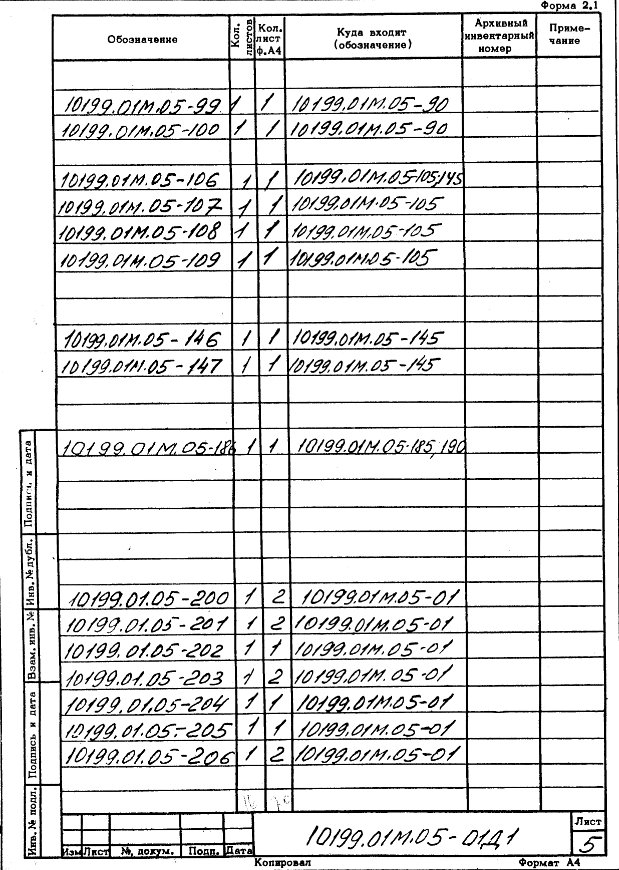 Форма 2.1
Обозначение Кол. листов Кол. лист ф.А4 Куда входит (обозначение) Архивный инвентарный номер Приме-чание
10199.01М.05-99 1 1 10199.01М.05-90
10199.01М.05-100 1 1 10199.01М.05-90
10199.01М.05-106 1 1 10199.01М.05-105,145
10199.01М.05-107 1 1 10199.01М.05-105
10199.01М.05-108 1 1 10199.01М.05-105
10199.01М.05-109 1 1 10199.01М.05-105
10199.01М.05-146 1 1 10199.01М.05-145
10199.01М.05-147 1 1 10199.01М.05-145
10199.01М.05-186 1 1 10199.01М.05-185,190
10199.01.05-200 1 2 10199.01М.05-01
10199.01.05-201 1 2 10199.01М.05-01
10199.01.05-202 1 1 10199.01М.05-01
10199.01.05-203 1 2 10199.01М.05-01
10199.01.05-204 1 1 10199.01М.05-01
10199.01.05-205 1 1 10199.01М.05-01
10199.01.05-206 1 2 10199.01М.05-01
Подпись и дата
Инв. № дубл.
Взам. инв. №
Подпись и дата
Инв. № подл.
10199.01М.05-01Д1
Лист
5
Изм Лист №, докум. Подп. Дата
Копировал Формат А4